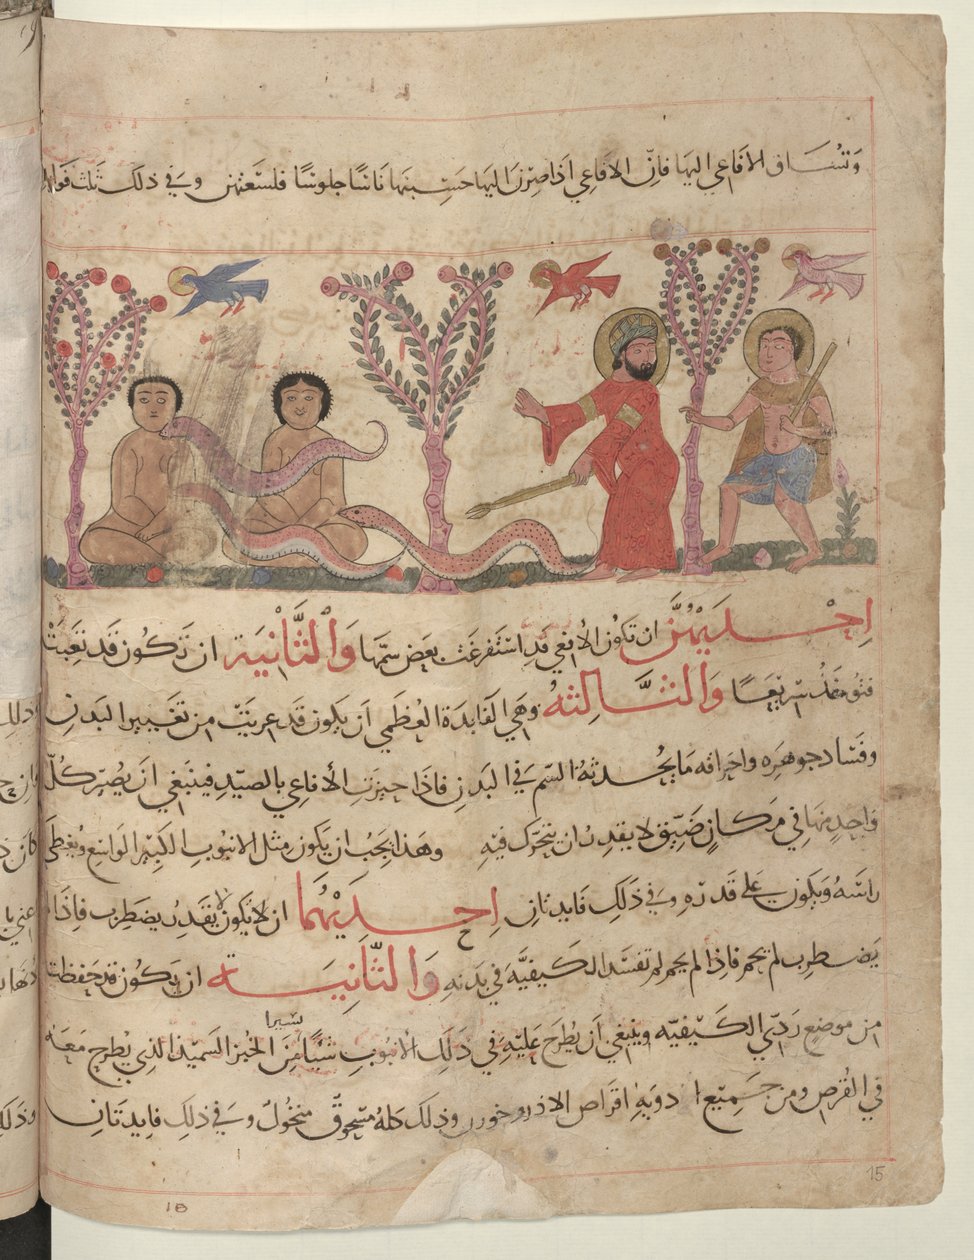 وتنساق الافاعي اليها فانّ الافاعي اذا صرن اليها حسبنها ناسًا جلوسًا فلسعنهن وفي ذلك ثلث فوائد
احديهنّ ان تكون الأفعي قد استفرغت بعض سمّها والثانية ان تكون قد تعبت
سريعًا والثالثة وهي الفايدة العظمي ان يكون قد عريت من تغيير البدن
وفساد جوهره واحراقه ما يحدثه السم في البدن فاذا حيزت الأفاعي بالصيد فينبغي ان يصير كلّ
واحد منها في مكان ضيّق لا يقدر ان يتحرّك فيه وهذا يجب ان يكون مثل الانبوب الكبير الواسع ويغطي
راسه ويكون علي قدره وفي ذلك فايدتان احديهما ان لا تكون لا يقدر يضطرب فاذا
يضطرب لم يحم فاذا لم يحم لم تفسد الكيفيّة في بدنه والثانية ان يكون قد حفظت
من موضع رديّ الكيفيّه وينبغي أن يطرح عليه في ذلك الأنبوب شيًا من الخبز السميذ الذي يطرح معه
يسيرا
في القرص ومن جميع ادويه اقراص الاندروخورن وذلك كله مسحوق منخول وفي ذلك فايدتان
15